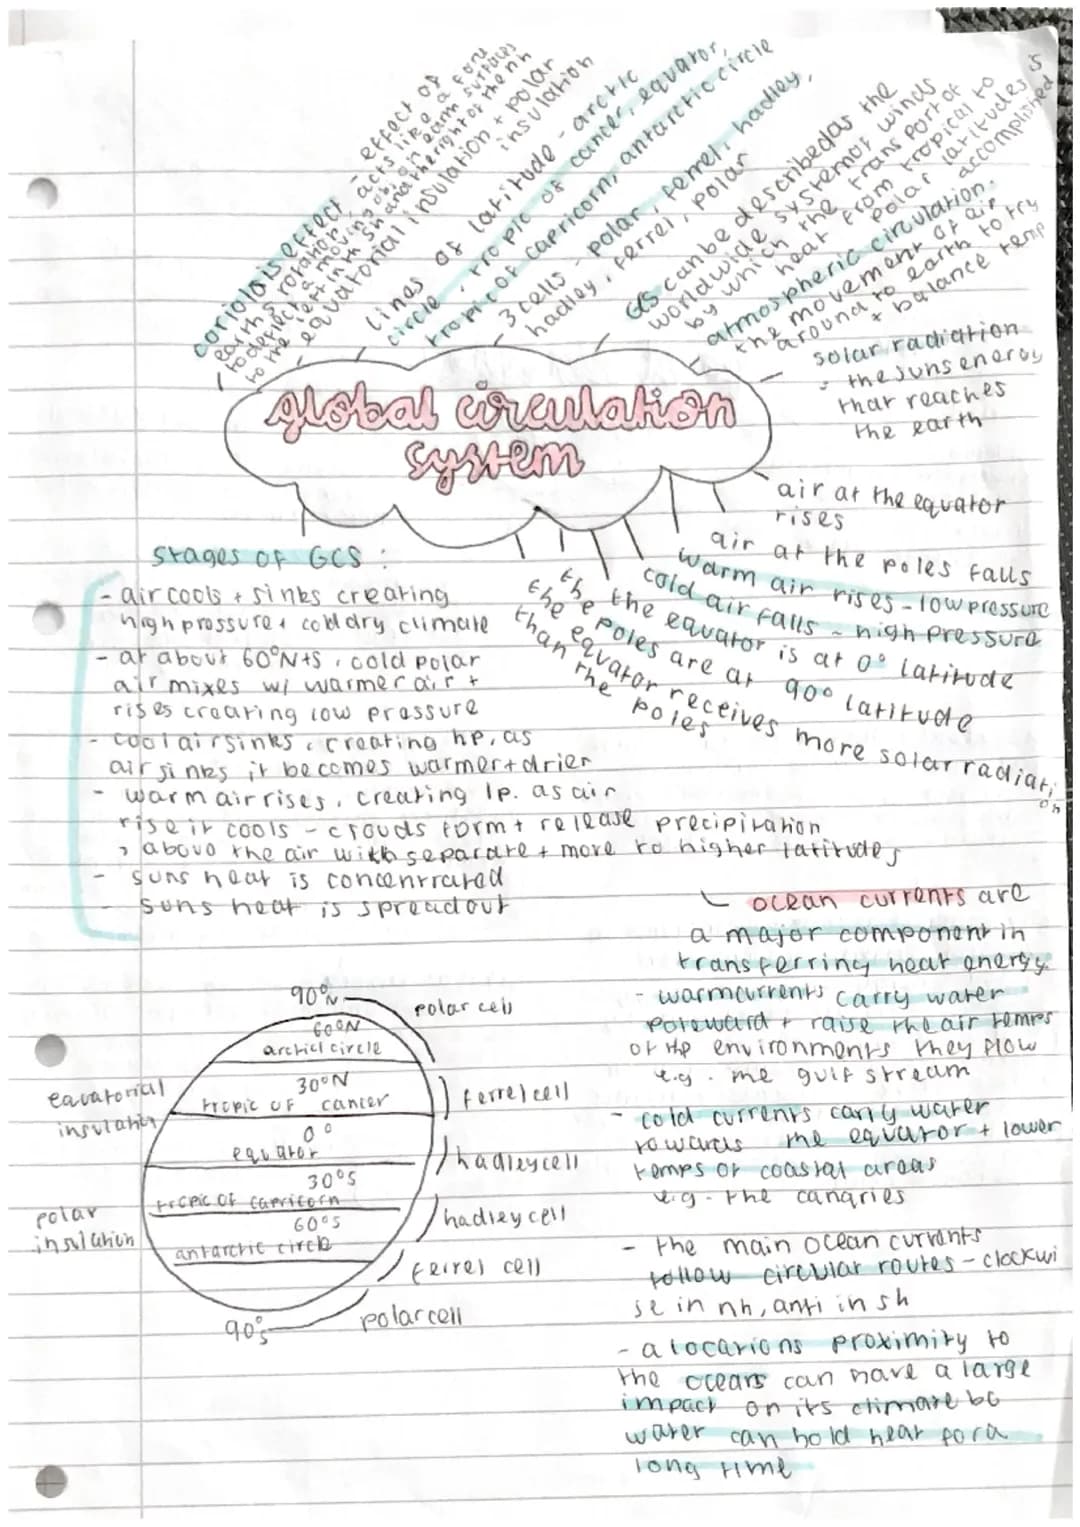 coriolis effect - effect of
earth's rotation, acts like a force
to deflect a moving obj. on earth surfaces
to the left in th sh and the right of the nh
equatorial insulation + polar
insulation
lines of latitude - arctic
circle, tropic of cancer, equator,
tropic of capricorn, antarctic circle
3 cells - polar, ferrel, hadley,
hadley, ferrel, polar
GCS can be described as the
worldwide system of winds
by which the transport of
heat from tropical to
polar latitudes is
accomplished
atmospheric circulation:
the movement of air
around to earth to try
+ balance temp
solar radiation
: the suns energy
that reaches
the earth
global circulation
system
air at the equator
rises
air at the poles falls
warm air rises - low pressure
cold air falls - high pressure
the equator is at 0° latitude
the poles are at 90° latitude
the equator receives more solar radiation
than the poles
stages of GCS :
- air cools + sinks creating
high pressure + cold dry climate
- at about 60°N+S, cold polar
air mixes w/ warmer air +
rises creating low pressure
- cool air sinks, creating hp, as
air sinks it becomes warmer + drier
- warm air rises, creating lp. as air
rise it cools - clouds form + release precipitation
, above the air with separate + more to higher latitudes
- suns heat is concentrated
- suns heat is spread out
ocean currents are
a major component in
transferring heat energy
- warm currents carry water
poleward + raise the air temps
of the environments they flow
e.g. the gulf stream
- cold currents carry water
towards the equator + lower
temps of coastal areas
e.g. the canaries
- the main ocean currents
follow circular routes - clockwi
se in nh, anti in sh
- a locations proximity to
the oceans can have a large
impact on its climate bc
water can hold heat for a
long time
90°N
polar cell
60°N
arctic circle
30°N
tropic of cancer
ferrel cell
equatorial
insulation
0°
equator
hadley cell
30°S
tropic of capricorn
hadley cell
polar
insulation
60°S
antarctic circle
ferrel cell
90°S
polar cell